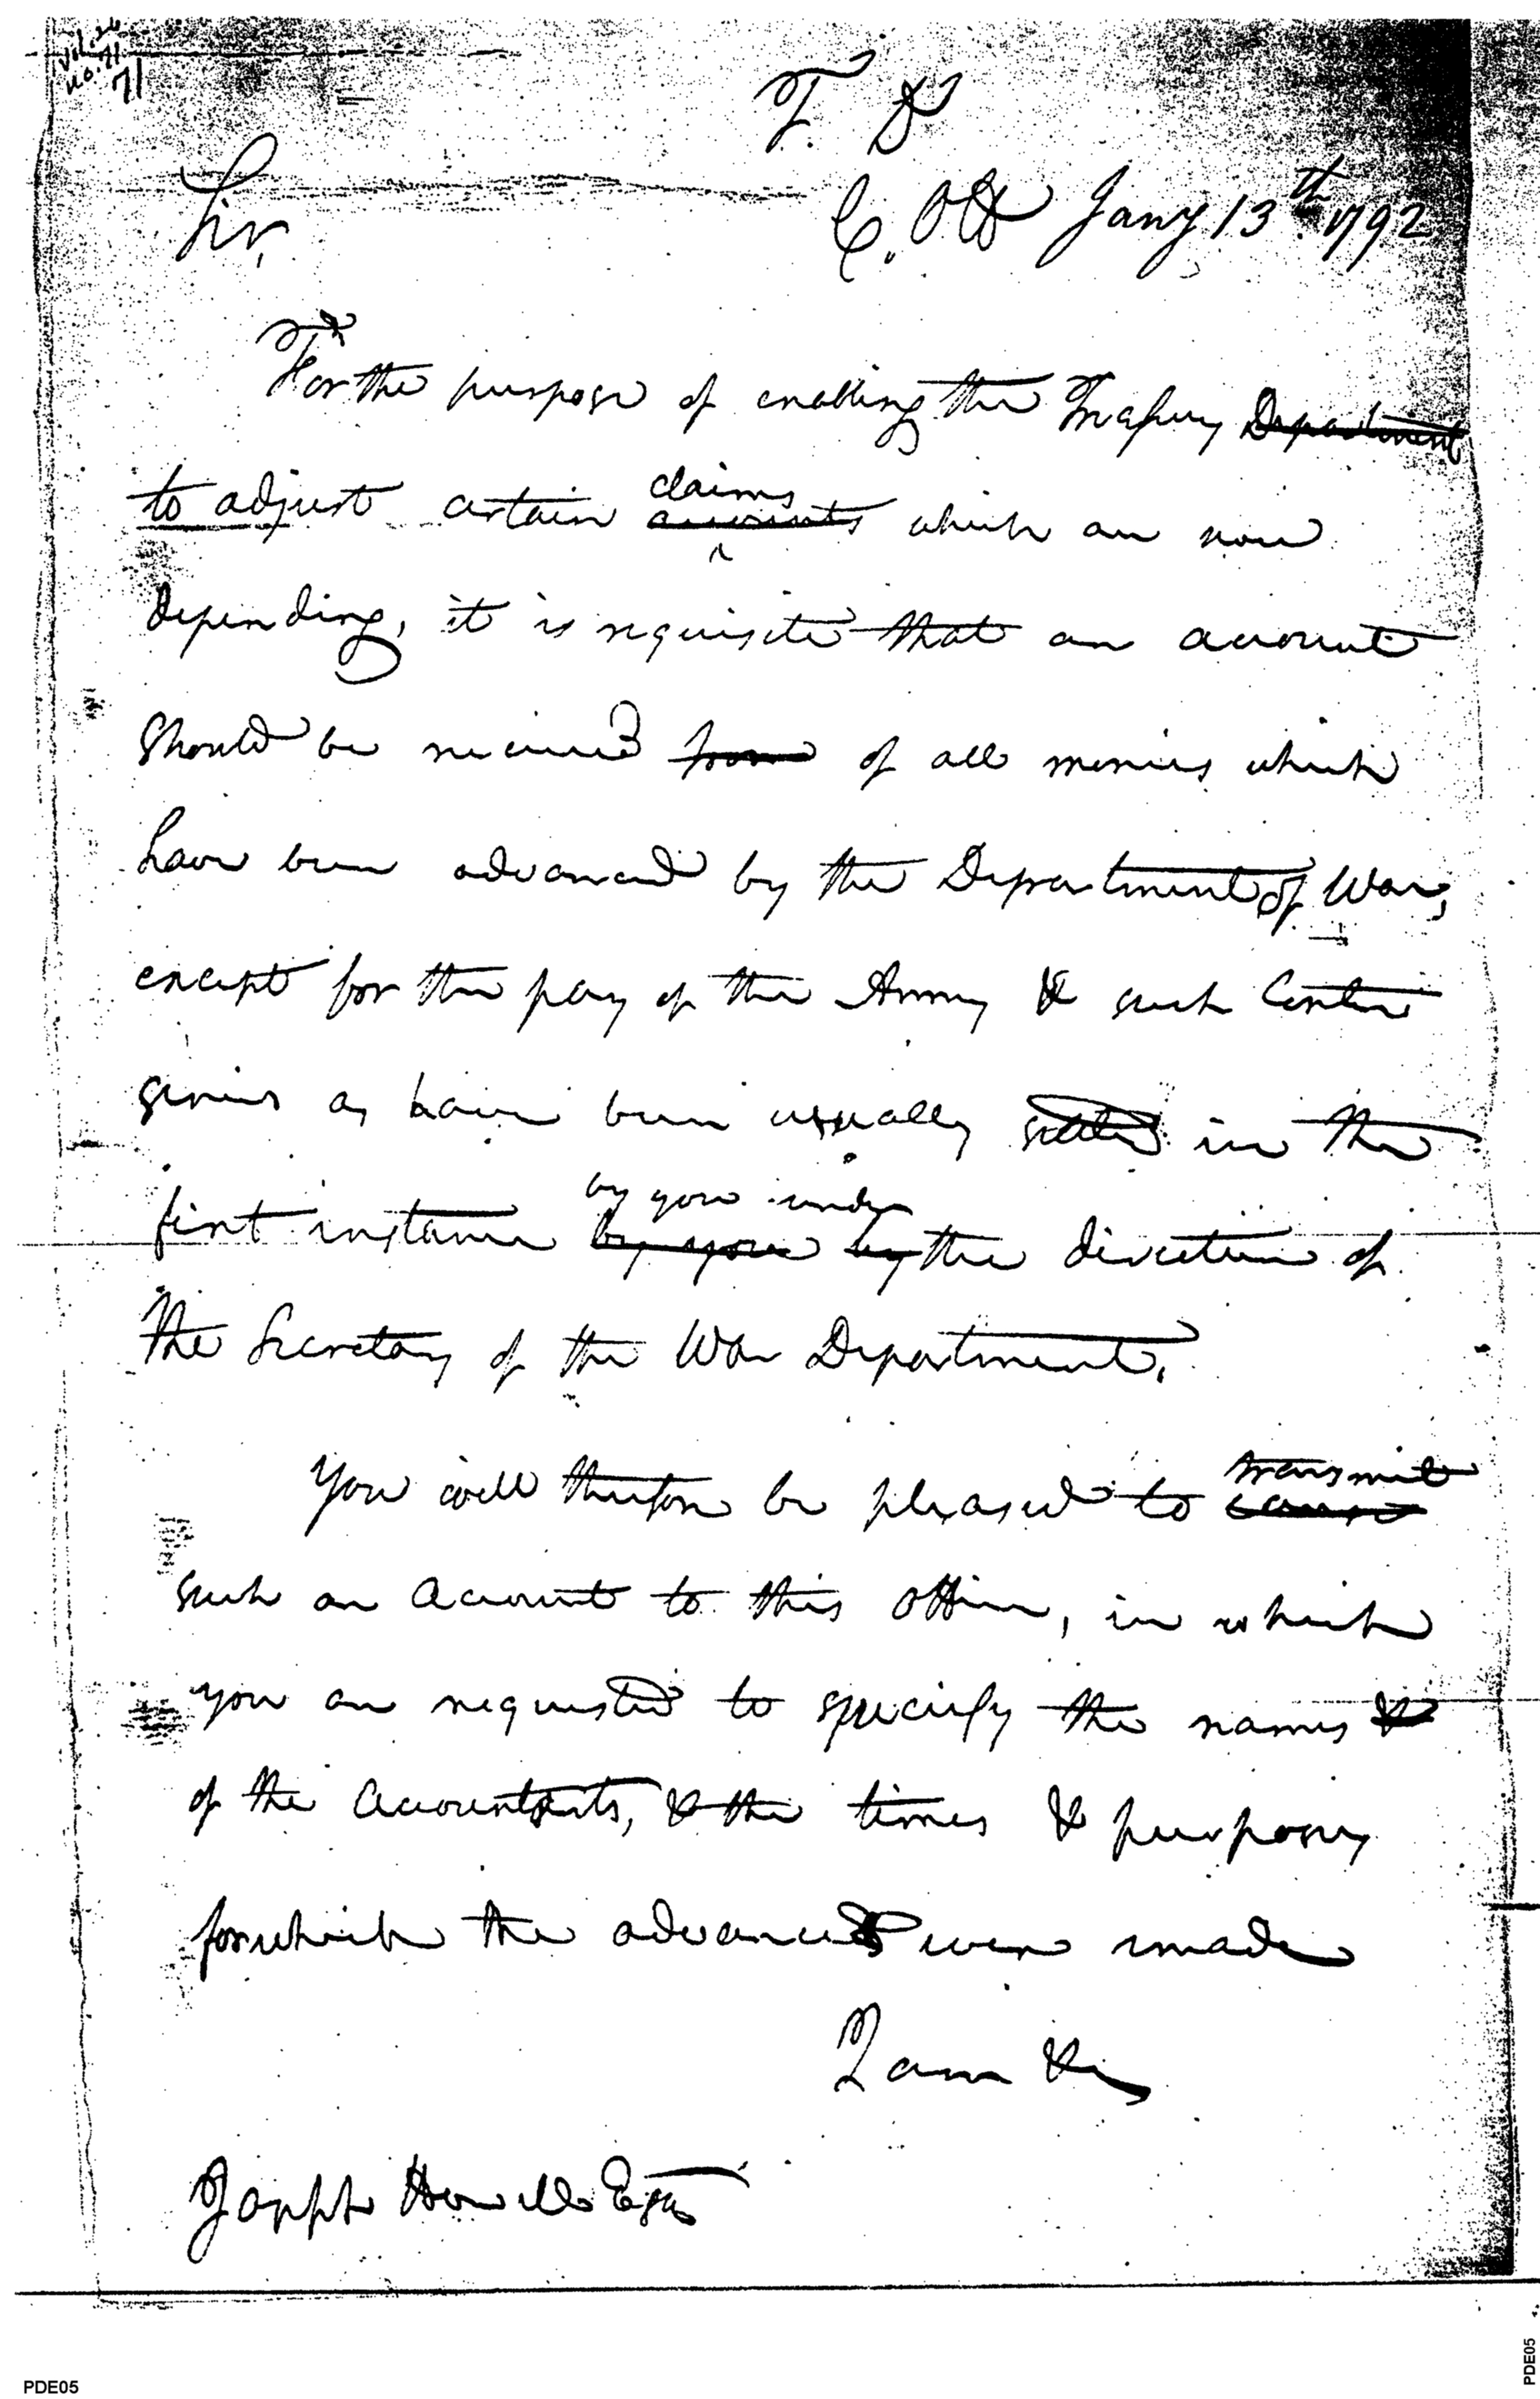 Vol. 26
No. 71
71
T. D
C. Off Jany 13th 1792
Sir,
For the purpose of enabling the Treasury Department
to adjust certain claims accounts which are now
depending, it is requisite that an account
should be received from of all monies which
have been advanced by the Department of War,
except for the pay of the Army & such Contin
gencies as have been usually settled in the
by you under
first instance by you by the direction of
the Secretary of the War Department.
You will therefore be pleased to transmit cause
such an account to this Office, in which
you are requested to specify the names &
of the Accountants, & the times & purposes
for which the advances were made
I am &c
Joseph Howell Esqr
PDE05
PDE05